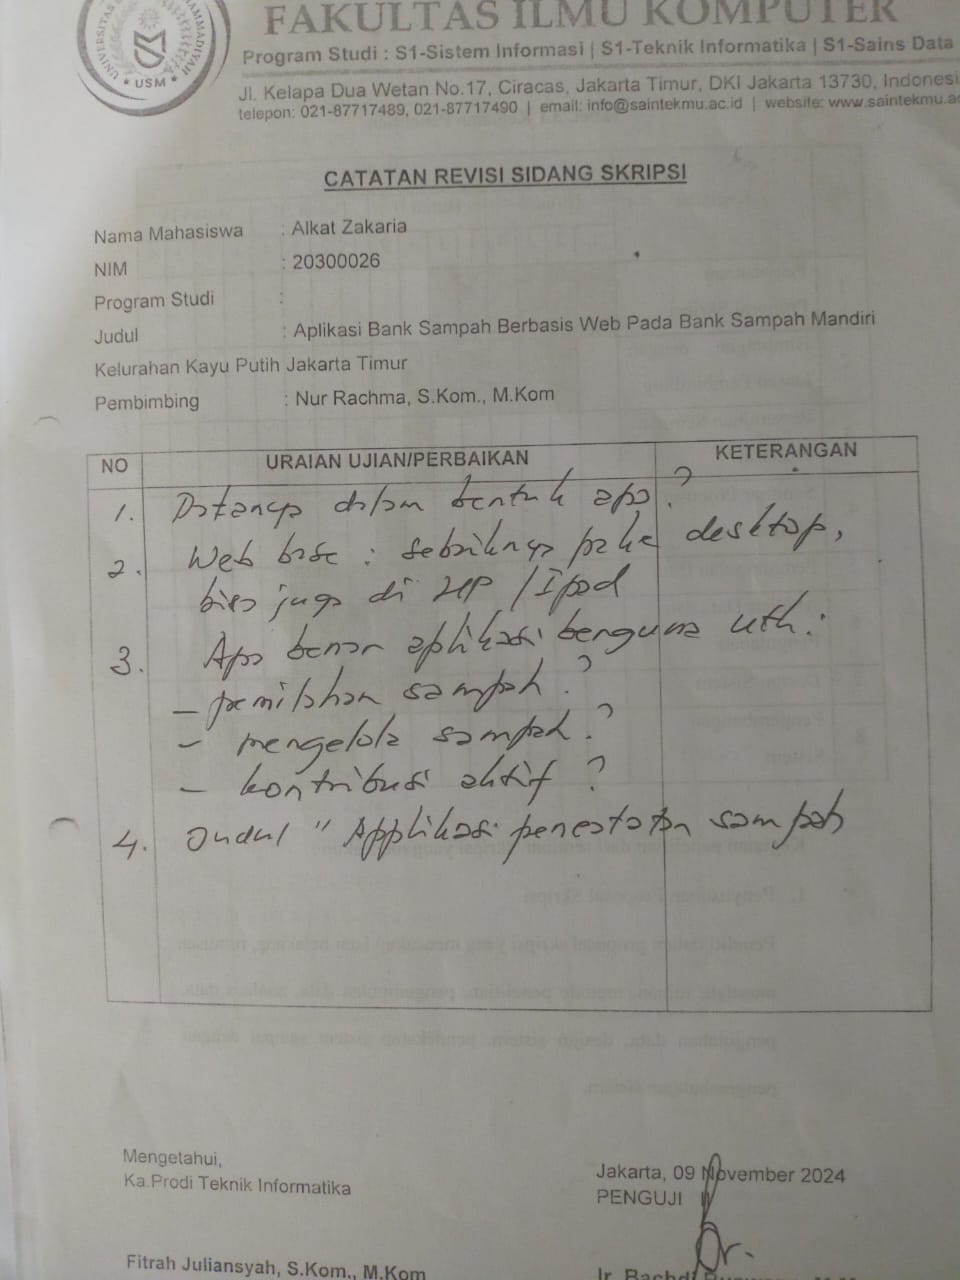 FAKULTAS ILMU KOMPUTER
Program Studi : S1-Sistem Informasi | S1-Teknik Informatika | S1-Sains Data
Jl. Kelapa Dua Wetan No.17, Ciracas, Jakarta Timur, DKI Jakarta 13730, Indonesi
telepon: 021-87717489, 021-87717490 | email: info@saintekmu.ac.id | website: www.saintekmu.ac
USM
CATATAN REVISI SIDANG SKRIPSI
Nama Mahasiswa : Alkat Zakaria
NIM : 20300026
Program Studi :
Judul : Aplikasi Bank Sampah Berbasis Web Pada Bank Sampah Mandiri
Kelurahan Kayu Putih Jakarta Timur
Pembimbing : Nur Rachma, S.Kom., M.Kom
NO URAIAN UJIAN/PERBAIKAN KETERANGAN
1. Datanya dalam bentuk apa?
2. Web base : sebaiknya pake desktop,
bisa juga di HP / Ipad
3. Apa benar aplikasi berguna utk :
- pemilahan sampah ?
- mengelola sampah ?
- kontribusi aktif ?
4. Judul " Applikasi sampah
Mengetahui,
Ka.Prodi Teknik Informatika
Jakarta, 09 November 2024
PENGUJI
Fitrah Juliansyah, S.Kom., M.Kom
Ir.